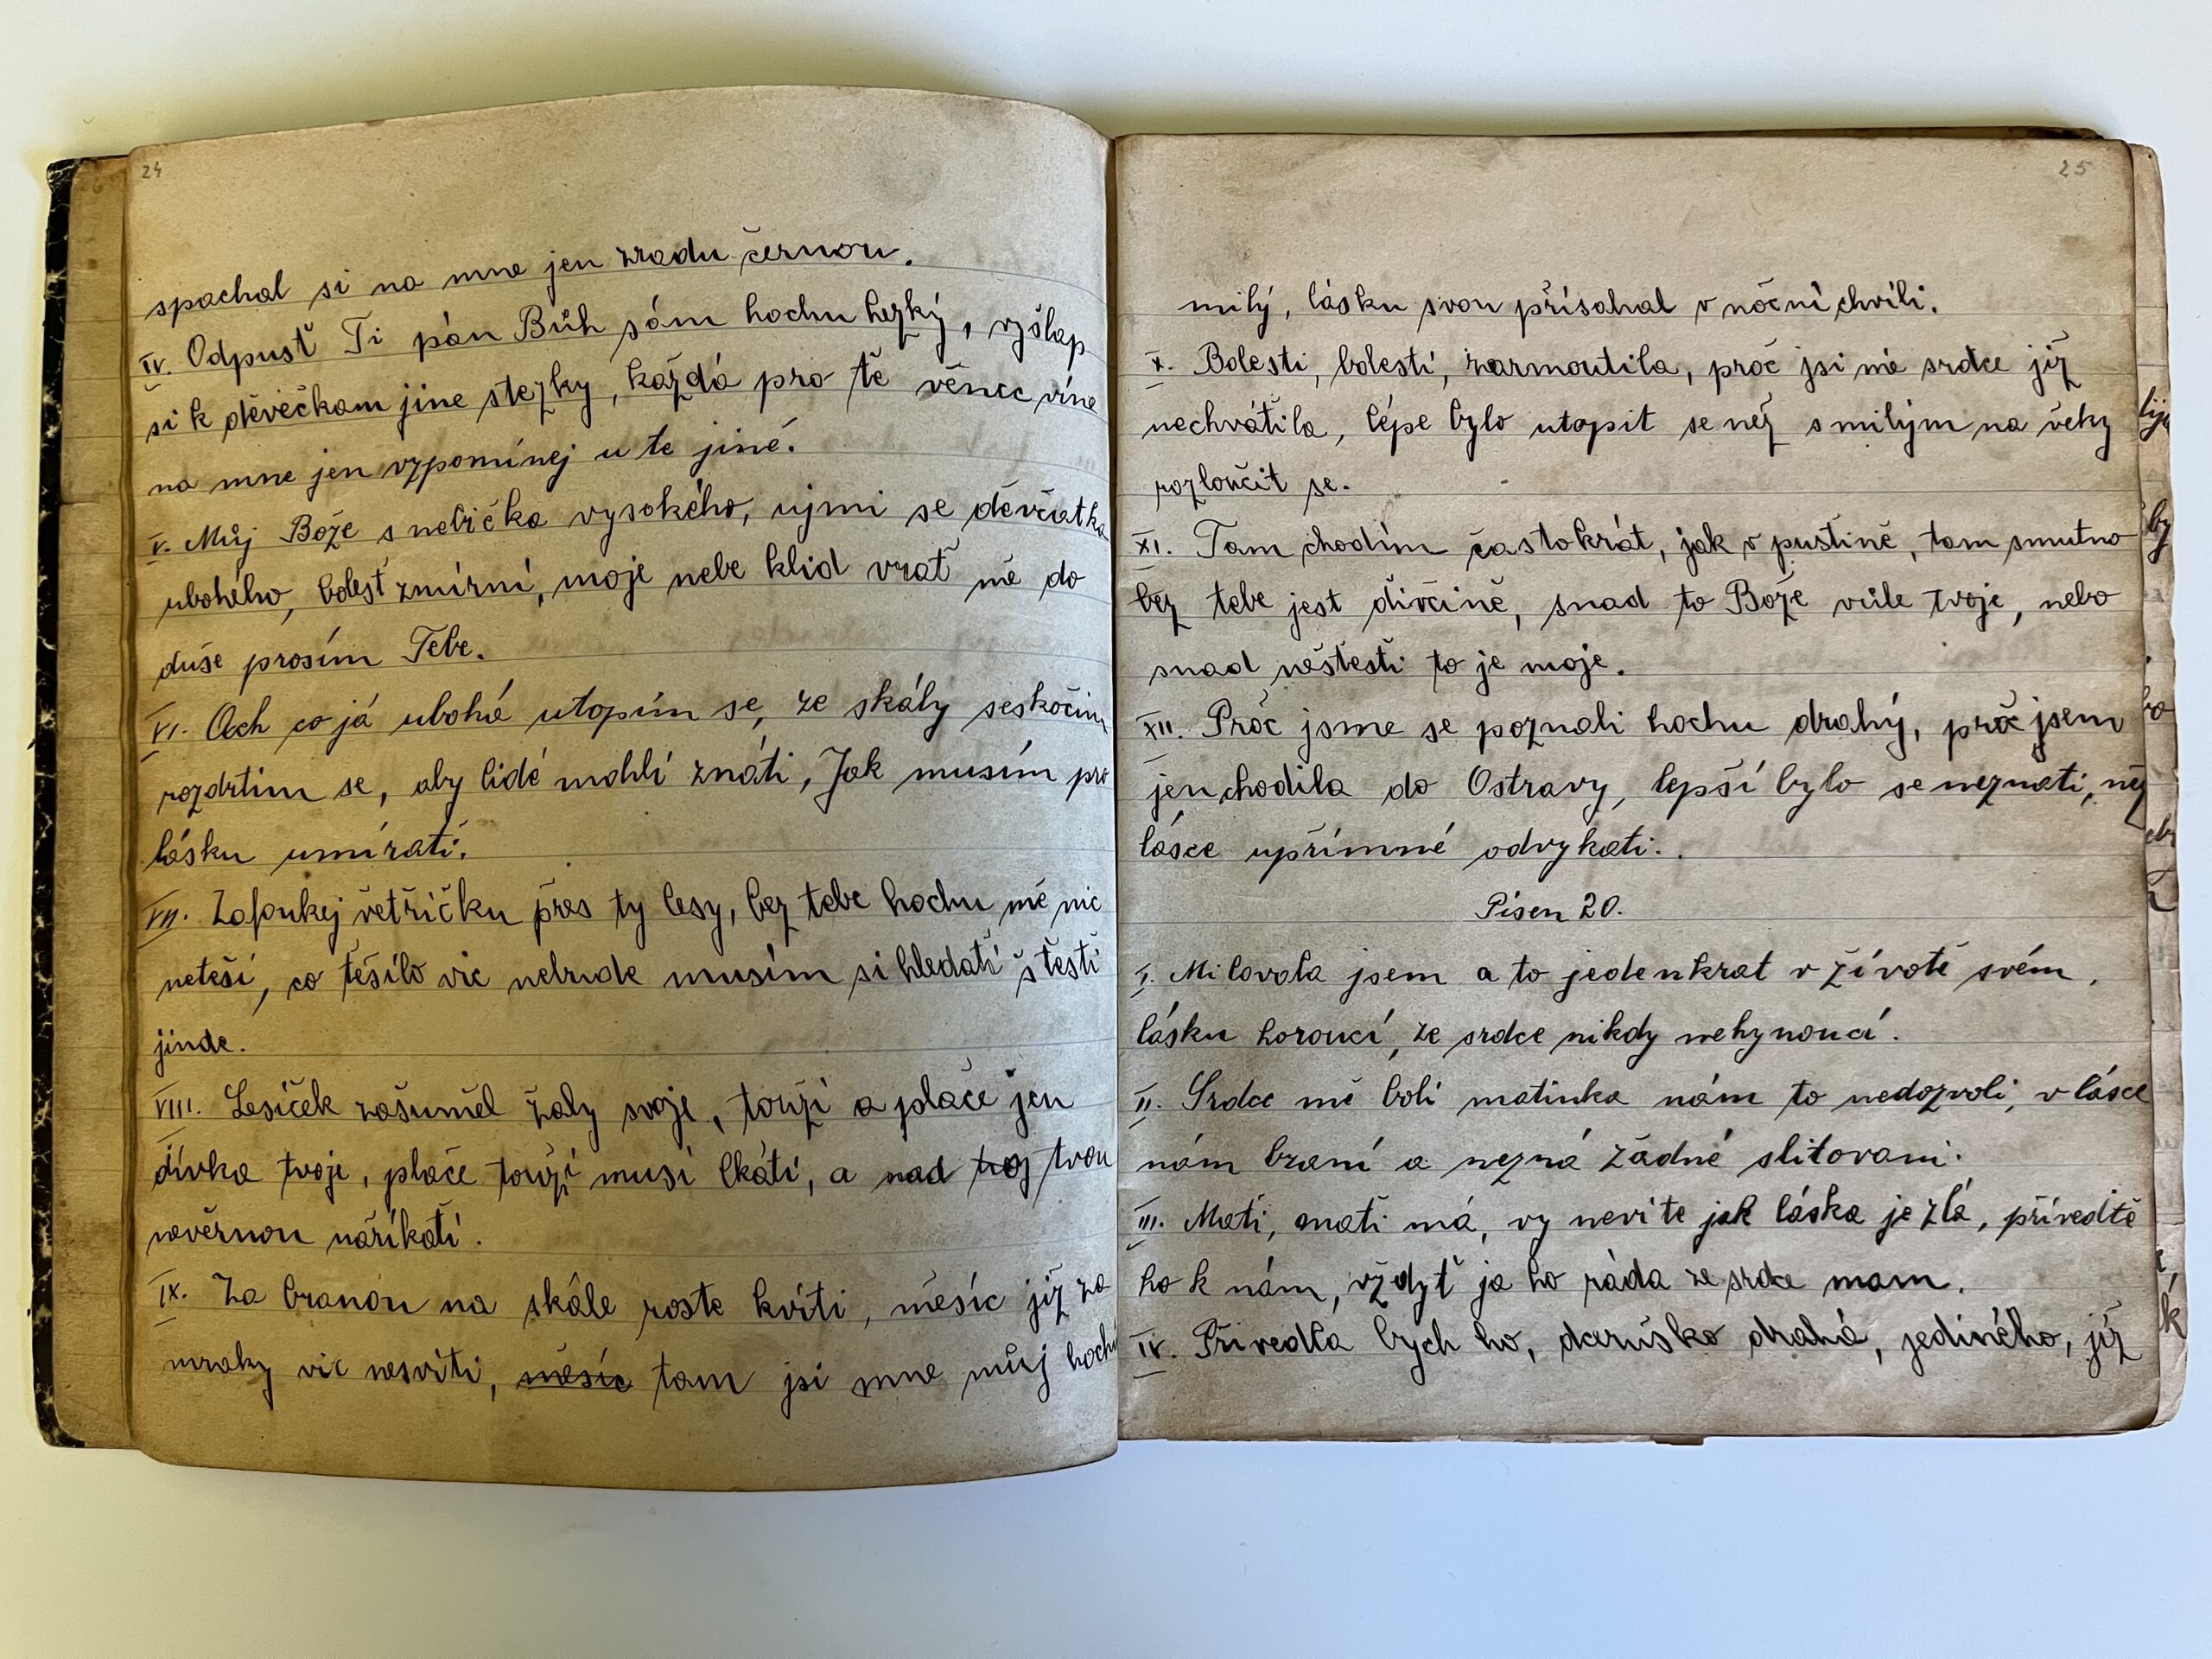 24
spachal si na mne jen zradu černou.
IV. Odpusť Ti pán Bůh sám hochu hezký, vyšlap
si k děvečkam jine stezky, každá pro tě věnec vine
na mne jen vzpomínej u te jiné.
V. Můj Bože s nebička vysokého, ujmi se děvčatka
ubohého, bolesť zmírni, moje nebe klid vrať mě do
duše prosím Tebe.
VI. Och co já ubohá utopím se, ze skály seskočím
rozdrtim se, aby lidé mohli znáti, Jak musím pro
lásku umírati.
VII. Zafoukej větříčku přes ty lesy, bez tebe hochu mě nic
neteší, co těšilo vic nebude musím si hledati štěsti
jinde.
VIII. Lesíček zašuměl žaly svoje, touži a pláče jen
dívka tvoje, plače touži musi lkáti, a nad tvoj tvou
nevěrnou naříkati.
IX. Za branou na skále roste kviti, měsíc již za
mraky vic nesviti, měsíc tam jsi mne můj hochu
25
milý, lásku svou přisahal v noční chvíli.
X. Bolesti, bolesti, zarmoutila, proč jsi mé srdce již
nechvátila, lépe bylo utopit se než s milým na věky
rozloučit se.
XI. Tam chodím častokrát, jak v pustině, tam smutno
bez tebe jest divčině, snad to Bože vůle tvoje, nebo
snad neštesti to je moje.
XII. Proč jsme se poznali hochu drahý, proč jsem
jen chodila do Ostravy, lepší bylo se neznati, než
lásce upřímné odvykati.
Pisen 20.
I. Milovala jsem a to jedenkrat v životě svém,
lásku horoucí, ze srdce nikdy nehynoucí.
II. Srdce mě bolí matinka nám to nedozvoli, v lásce
nám braní a nezná žádné slitovani.
III. Mati, mati má, vy nevite jak láska je zlá, přiveďte
ho k nám, vždyť ja ho ráda ze srdce mam.
IV. Přivedla bych ho, deruško drahá, jediného, již